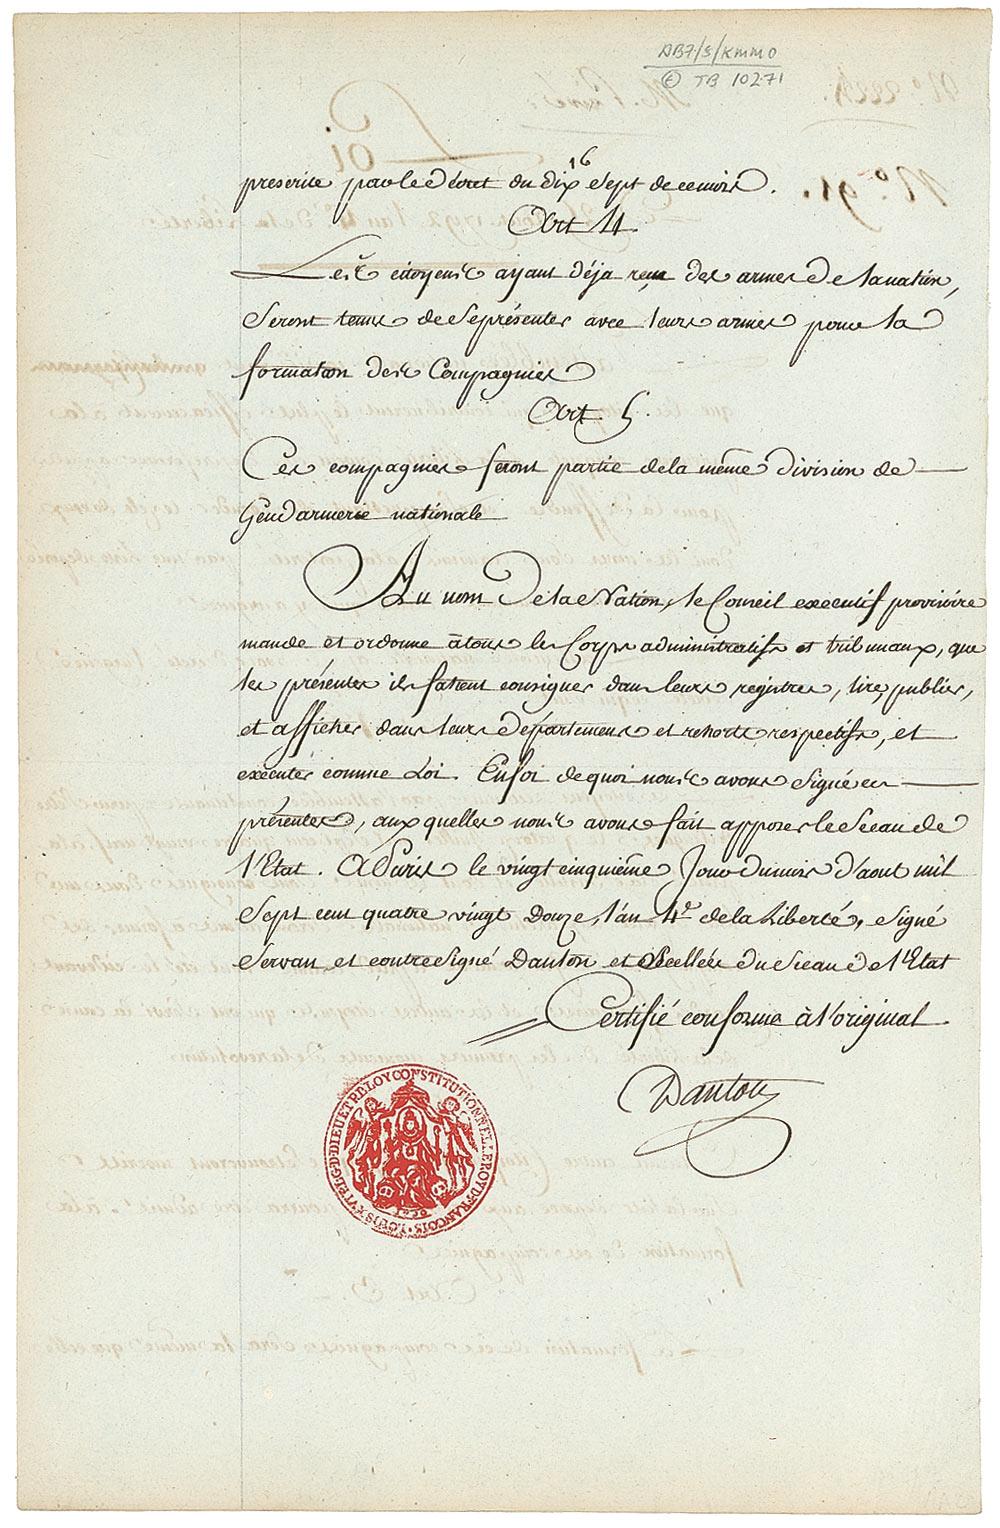 AB7/5/KMMO
© TB 10271
prescrite par le décret du dix Sept de ce mois.
16
Art 4.
Les citoyens ayant déja reçu des armes de la nation,
Seront tenus de se présenter avec leurs armes pour la
formation des Compagnies
Art 5.
Ces compagnies feront partie de la même division de
Gendarmerie nationale
Au nom de la Nation, le Conseil executif provisoire
mande et ordonne à tous les Corps administratifs et tribunaux, que
les présentes ils fassent consigner dans leurs registres, lire, publier,
et afficher dans leurs départemens et ressorts respectifs, et
exécuter comme Loi. En foi de quoi nous avons signé ces
présentes, auxquelles nous avons fait apposer le Sceau de
l'Etat. A Paris le vingt cinquième Jour du mois d'aout mil
Sept cent quatre vingt douze, l'an 4e de la Liberté, signé
Servan, et contresigné Danton et Scellées du Sceau de l'Etat
Certifié conforme à l'original.
Danton
LOUIS XVI P.L.G.D. DIEU ET P. LA LOY CONSTITUTIONNELLE ROY D. FRANÇOIS